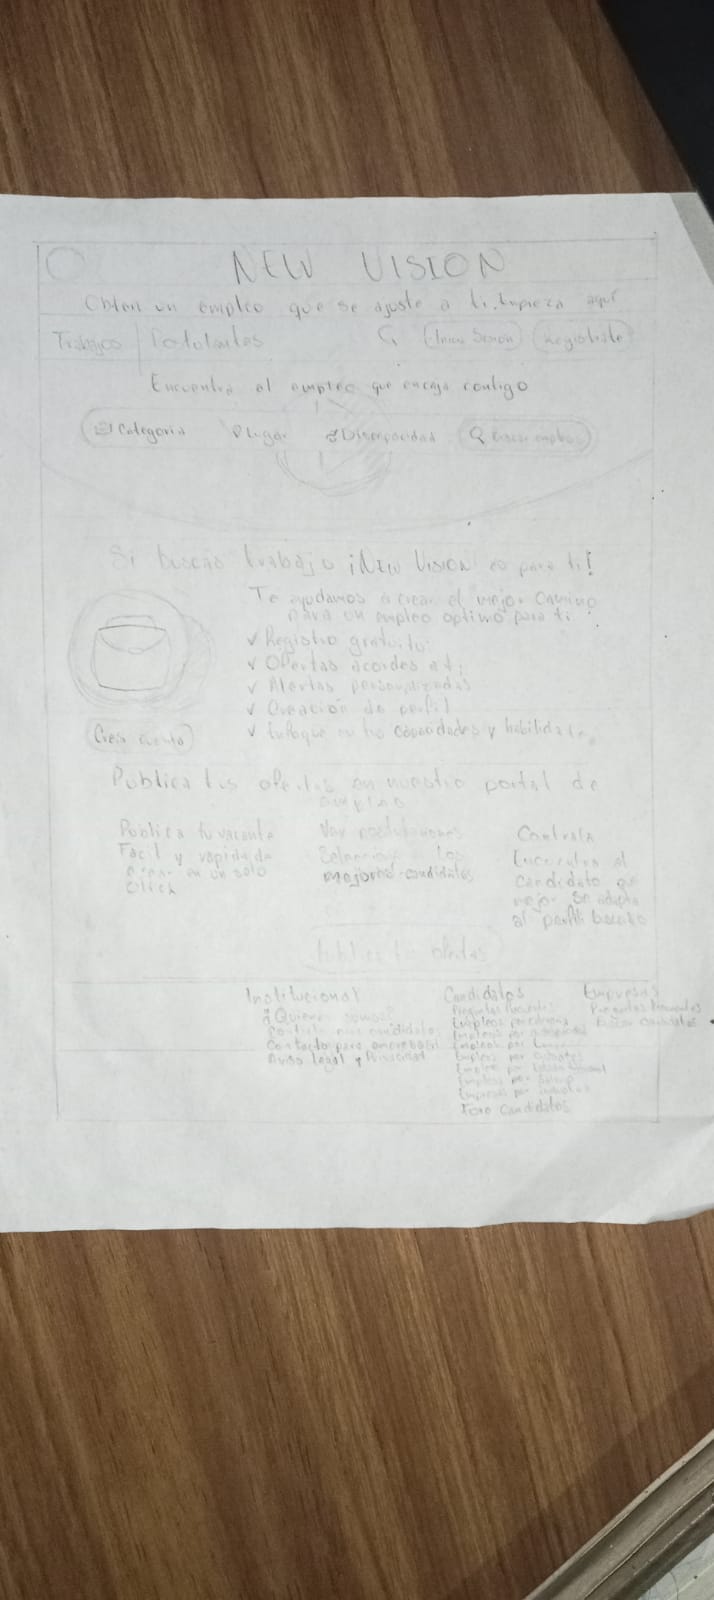 NEW VISION
Obten un empleo que se ajuste a ti. Empieza aquí
Trabajos Postulantes Inicia Sesion Registrate
Encuentra el empleo que encaja contigo
Categoria Lugar Discapacidad Buscar empleo
Si buscas trabajo ¡New Vision es para ti!
Te ayudamos a crear el mejor camino
para un empleo optimo para ti
✓ Registro gratuito
✓ Ofertas acordes a ti
✓ Alertas personalizadas
✓ Creación de perfil
✓ Enfoque en tus capacidades y habilidades
Crear cuenta
Publica tus ofertas en nuestro portal de
empleo
Publica tu vacante
Facil y rapido de
en un solo
Click
Ver postulaciones
Selecciona a los
mejores candidatos
Contrata
Encuentra al
candidato que
mejor se adapta
al perfil buscado
Publica tus ofertas
Institucional
¿Quienes somos?
Contacto para candidatos
Contacto para empresas
Aviso legal y Privacidad
Candidatos
Preguntas frecuentes
Empleos por
Empleos por
Empleos por
Empleos por
Empleos por
Empleos por
Empleos por
Foro Candidatos
Empresas
Preguntas frecuentes
Candidatos